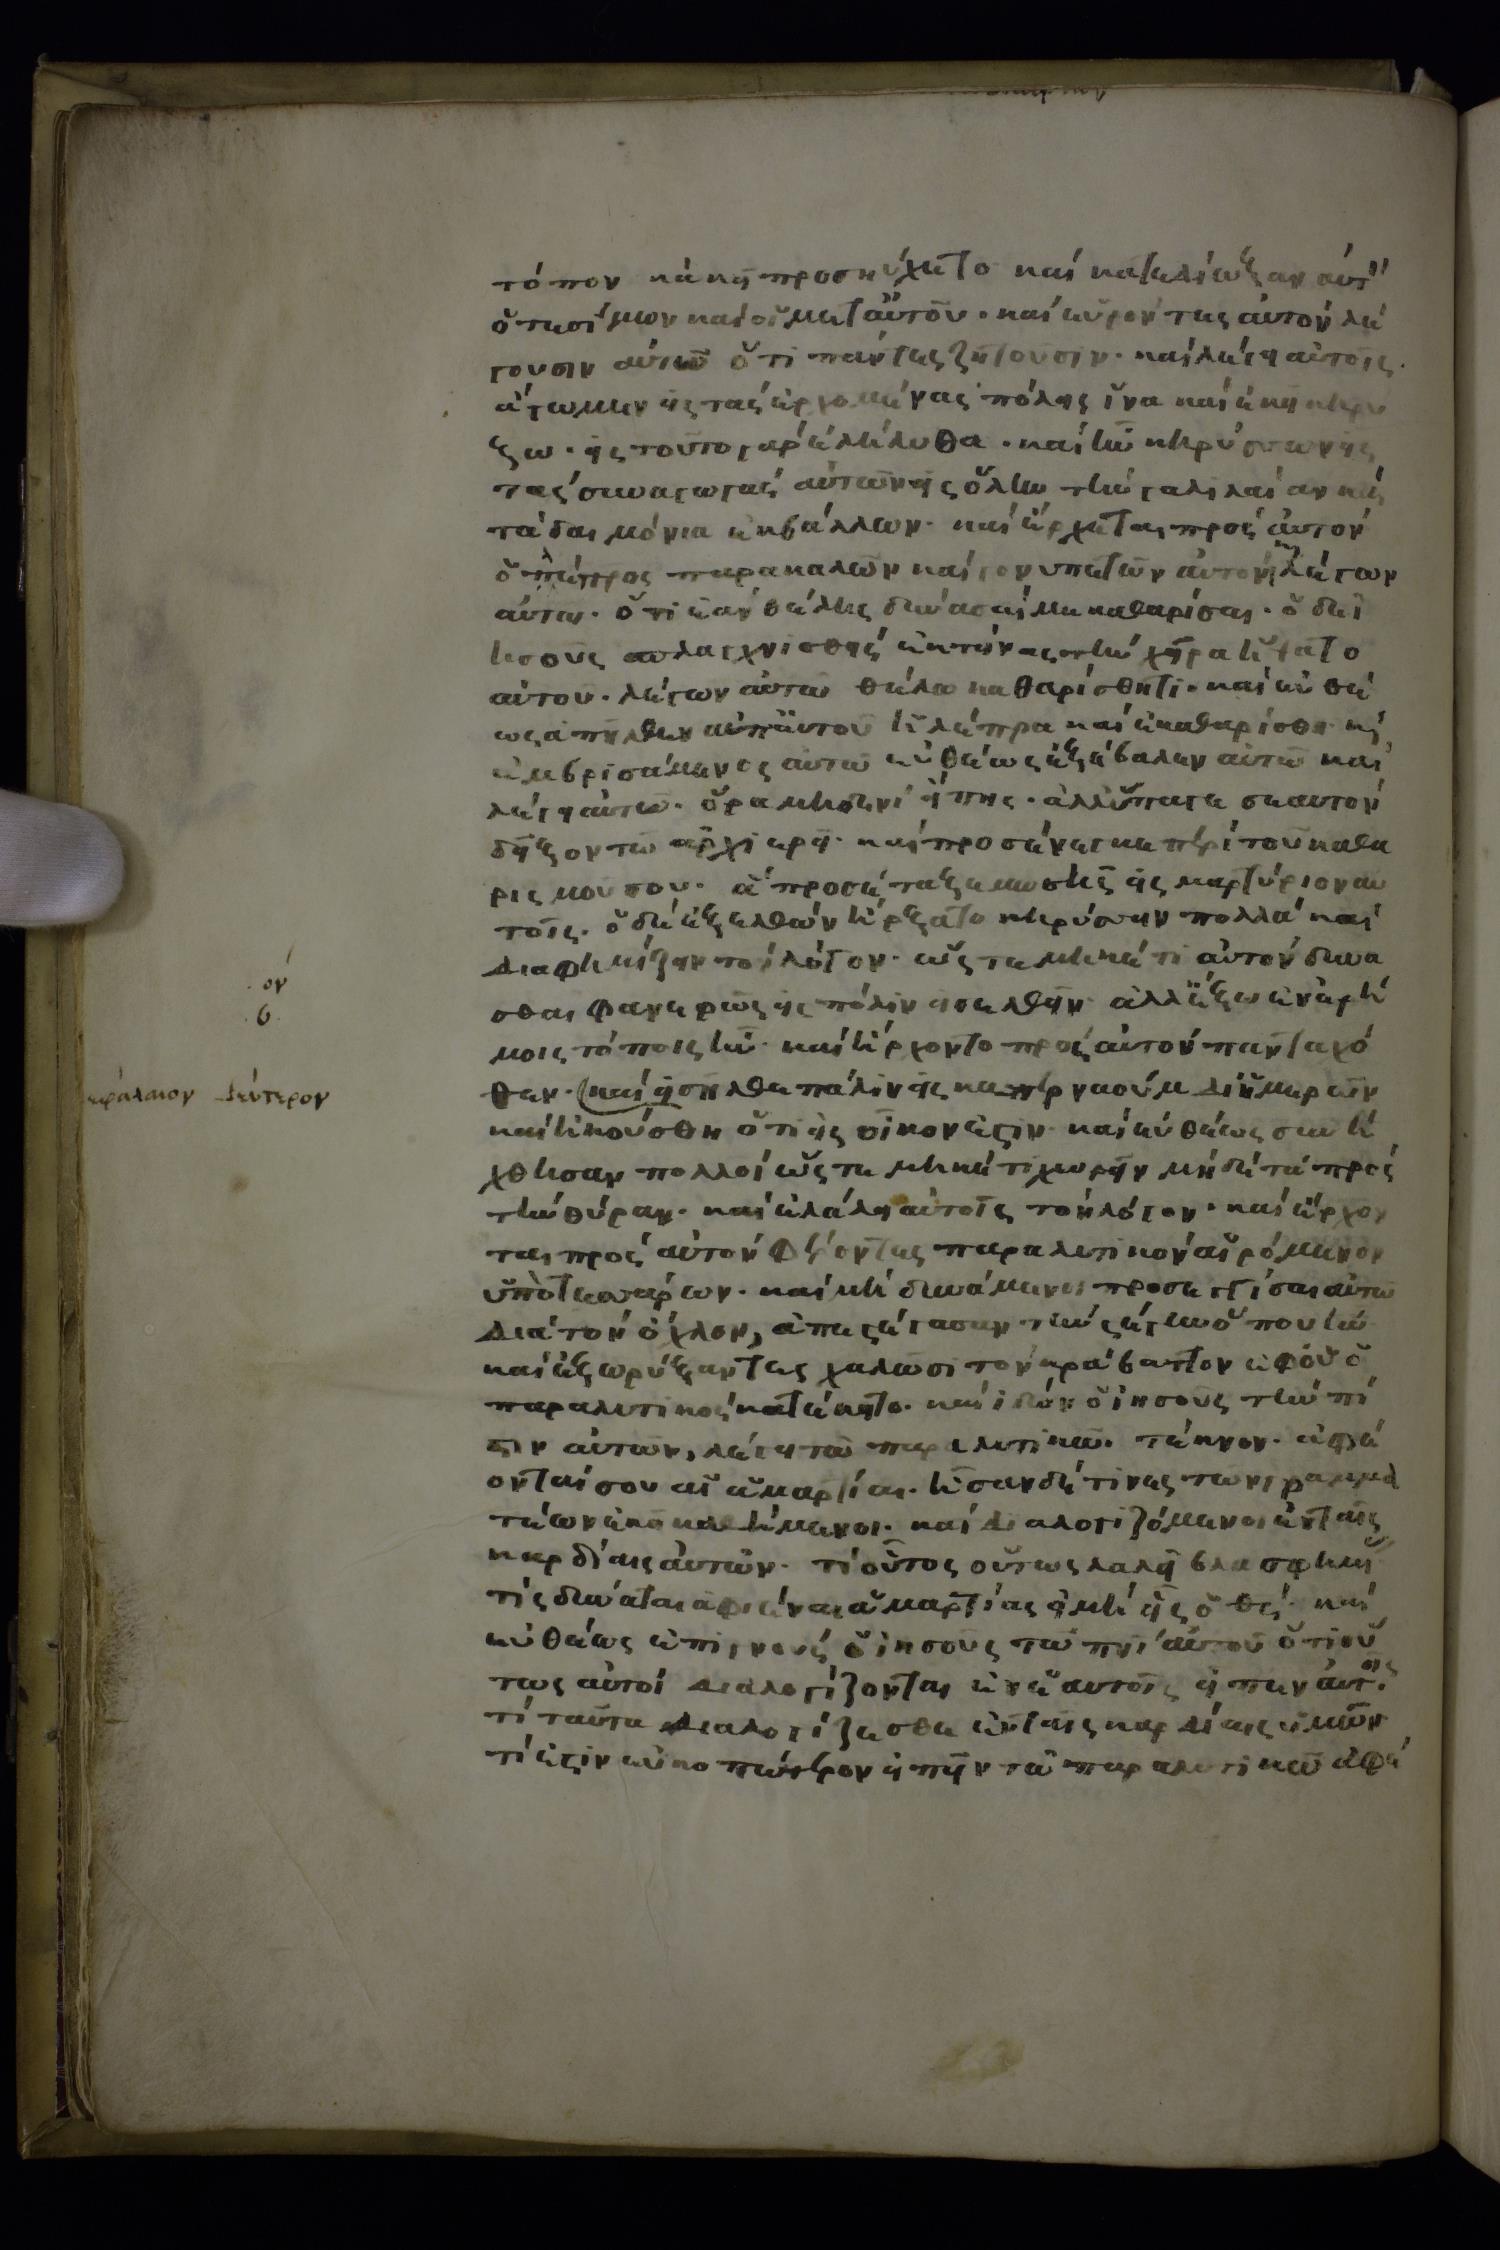 τόπον κἀκεῖ προσηύχετο καί κατεδίωξαν αὐτ
ὅτε σίμων καί οἵ μετ αὐτοῦ. καί εὑρόντες αὐτόν λέ
γουσιν αὐτῶ ὅτι πάντες ζητοῦσίν. καί λέγει αὐτοῖς.
ἄγωμεν εἰς τάς ἐρχομένας πόλεις ἵνα καί ἐκεῖ κηρύ
ξω. εἰς τοῦτο γάρ ἐλήλυθα. καί ἦν κηρύσσων εἰς
τάς συναγωγάς αὐτῶν εἰς ὅλην τήν γαλιλαίαν καί
τά δαιμόνια ἐκβάλλων. καί ἔρχεται πρός αὐτόν
ὁ λέπρος παρακαλῶν καί γονυπετῶν αὐτόν καί λέγων
αὐτω. ὅτι ἐάν θέλης δύνασαί με καθαρίσαι. ὁ δέ ἰ
ησοῦς σπλαγχνισθείς ἐκτείνας τήν χεῖρα ἥψατο
αὐτοῦ. λέγων αὐτῶ θέλω καθαρίσθητι. καί εὐθέ
ως ἀπῆλθεν ἀπ αὐτοῦ ἡ λέπρα καί ἐκαθαρίσθη καί
ἐμβρισάμενος αὐτῶ εὐθέως ἐξέβαλεν αὐτῶ καί
λέγει αὐτῶ. ὅρα μηδενί εἴπης. ἀλλ ὕπαγε σεαυτόν
δεῖξον τῶ ἀρχιερεῖ. καί προσένεγκε περί τοῦ καθα
ρισμοῦ σου. ἅ προσέταξε μωσῆς εἰς μαρτύριον αὐ
τοῖς. ὁ δέ ἐξελθών ἤρξατο κηρύσσειν πολλά καί
διαφημίζειν τόν λόγον. ὥστε μηκέτι αὐτόν δύνα
σθαι φανερῶς εἰς πόλιν εἰσελθεῖν. ἀλλ ἔξω ἐν ἐρή
μοις τόποις ἦν. καί ἤρχοντο πρός αὐτόν πανταχό
θεν. καί εἰσῆλθε πάλιν εἰς καπερναούμ δι ἡμερῶν
καί ἠκούσθη ὅτι εἰς οἶκον ἐστιν. καί εὐθέως συνή
χθησαν πολλοί ὥστε μηκέτι χωρεῖν μηδέ τά πρός
τήν θύραν. καί ἐλάλει αὐτοῖς τόν λόγον. καί ἔρχον
ται πρός αὐτόν φέροντες παραλυτικόν αἱρόμενον
ὑπό τεσσάρων. καί μή δυνάμενοι προσεγγίσαι αὐτω
διά τόν ὄχλον, ἀπεστέγασαν τήν στέγην ὅπου ἦν
καί ἐξωρύξαντες χαλῶσι τόν κράβαττον ἐφ οὗ ὁ
παραλυτικός κατέκειτο. καί ἰδών ὁ ἰησοῦς τήν πί
στιν αὐτῶν, λέγει τῶ παραλυτικῶ. τέκνον. ἀφέ
ονταί σου αἱ ἁμαρτίαι. ἦσαν δέ τινες τῶν γραμμα
τέων ἐκεῖ καθήμενοι. καί διαλογιζόμενοι ἐν ταῖς
καρδίαις αὐτῶν. τί οὗτος οὕτως λαλεῖ βλασφημεῖ
τίς δύναται ἀφιέναι ἁμαρτίας εἰ μή εἷς ὁ θς. καί
εὐθέως ἐπιγνούς ὁ ἰησοῦς τῶ πνι αὐτοῦ ὅτι οὕ
τως αὐτοί διαλογίζονται ἐν ἑαυτοῖς εἶπεν αὐτοῖς.
τί ταῦτα διαλογίζεσθε ἐν ταῖς καρδίαις ὑμῶν
τί ἐστιν εὐκοπώτερον εἰπεῖν τῶ παραλυτικῶ ἀφέ
ον
β
εφάλαιον δεύτερον